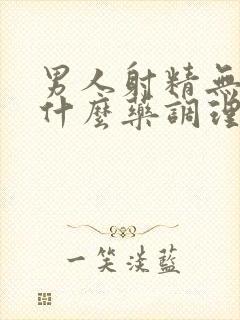 男人射精無
什麼藥調理
一笑淡藍